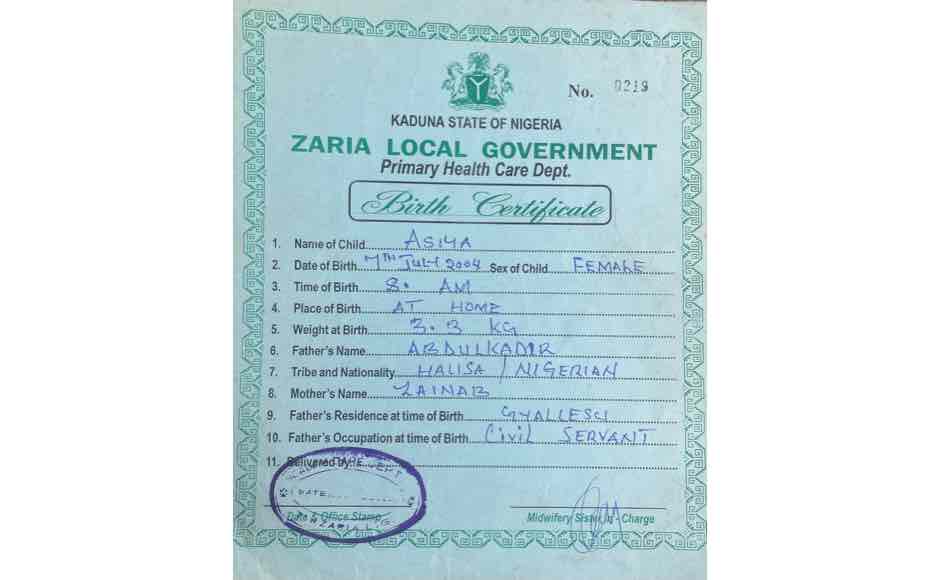 No. 0219
KADUNA STATE OF NIGERIA
ZARIA LOCAL GOVERNMENT
Primary Health Care Dept.
Birth Certificate
1. Name of Child ASIYA
2. Date of Birth 7TH JULY 2004 Sex of Child FEMALE
3. Time of Birth 8. AM
4. Place of Birth AT HOME
5. Weight at Birth 3.3 KG
6. Father's Name ABDULKADIR
7. Tribe and Nationality HAUSA / NIGERIAN
8. Mother's Name ZAINAB
9. Father's Residence at time of Birth GYALLESU
10. Father's Occupation at time of Birth CIVIL SERVANT
11. Delivered by:
DATE
Date & Office Stamp
ZARIA L.G.
Midwifery Sister In - Charge